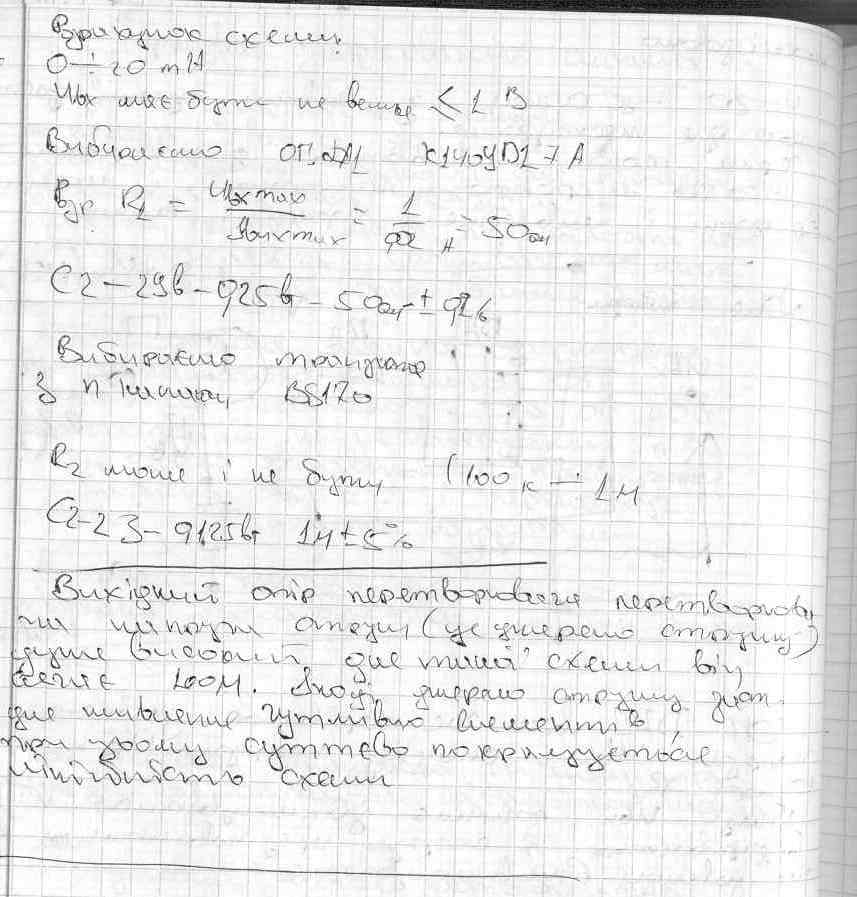 Врахунок схеми:
0 ÷ 20 mA
Uвх має бути не велике ≤ 1 В
Вибираємо ОП DA1 К140УД17А
R1 = Uвх max / Iвих max = 1 / 0,02 А = 50 ом
С2 – 29в – 0,25 вт – 50 ом ± 0,1%
Вибираємо транзистор
З n типом BS170
R2 може і не бути (100 к ÷ 1 М
С2-23 – 0,125 вт 1М ± 5%
Вихідний опір перетворювача
напруги струм (це джерело струму)
дуже високий для такої схеми він
сягає 100М. Іноді джерело струму
для живлення чутливих елементів,
при цьому суттєво покращується
лінійність схеми